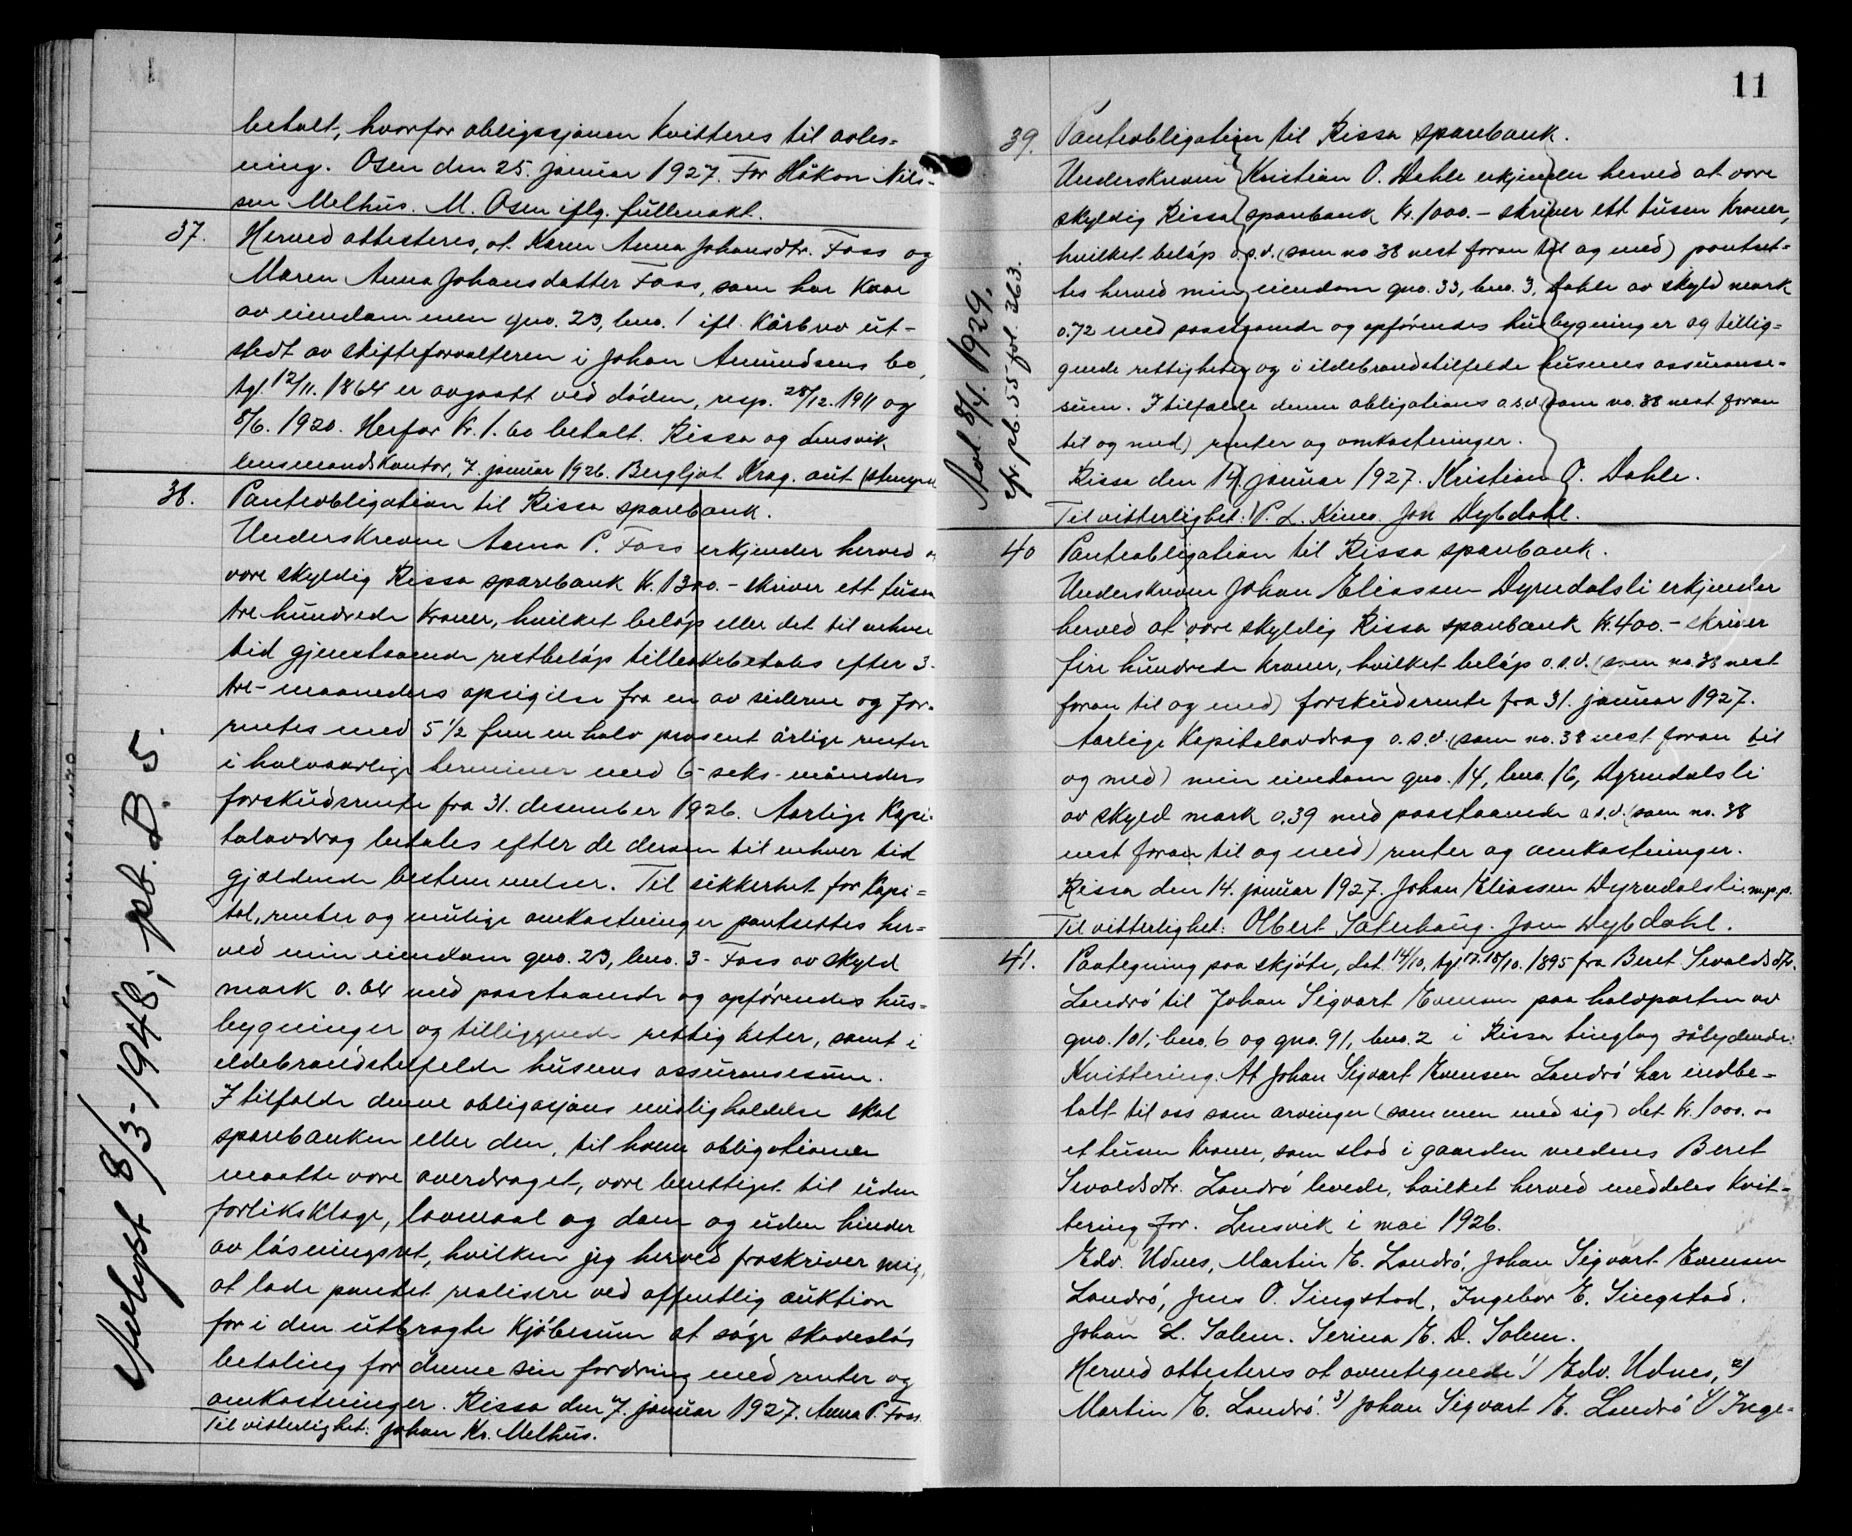 betalt, hvorfor obligasjonen kvitteres til avles=
ning. Osen den 25. januar 1927. For Håkon Nils-
sen Melhus. M. Osen iflg. fullmakt.
37. Herved attesteres, at Karen Anna Johansdtr. Foss og
Maren Anna Johansdatter Foss, som har kaar
av eiendommen gno. 23, bno. 1 ifl. kårbrev ut-
stedt av skifteforvalteren i Johan Amundsens bo,
tgl. 12/11. 1864 er avgaatt ved døden, resp. 28/12. 1911 og
8/6. 1920. Herfor kr. 1.60 betalt. Rissa og Lensvik
lensmandskontor, 7. januar 1926. Bergljot Krog. aut (stempel
38. Panteobligation til Rissa sparebank.
Underskrevne Anna P. Foss erkjender herved a
være skyldig Rissa sparebank kr. 1300.- skriver ett tusen
tre hundrede kroner, hvilket beløp eller det til enhver
tid gjenstaaende restbeløp tilbakebetales efter 3-
tre-maaneders opsigelse fra en av siderne og for-
rentes med 5 1/2 fem en halv prosent årlige renter
i halvaarlige terminer med 6-seks-måneders
forskudsrente fra 31. desember 1926. Aarlige kapi-
talavdrag betales efter de derom til enhver tid
gjældende bestemmelser. Til sikkerhet for kapi=
tal, renter og mulige omkostninger pantsettes her=
ved min eiendom gno. 23, bno. 3- Foss av skyld
mark 0.64 med paastaaende og opførendes hus=
bygninger og tilliggende rettigheter, samt i
ildebrandstilfelde husenes assuransesum.
I tilfælde denne obligasjons misligholdelse skal
sparebanken eller den, til hvem obligationen
maatte være overdraget, være berettiget til uden
forliksklage, lovmaal og dom og uden hinder
av løsningsret, hvilken jeg herved fraskriver mig,
at lade pantet realisere ved offentlig auktion
for i den utbragte kjøbesum at søge skadesløs
betaling for denne sin fordring med renter og
omkostninger. Rissa den 7. januar 1927. Anna P. Foss.
Til vitterlighet: Johan Kr. Melhus.
Avlyst 8/3-1948, pb. B. 5.
11
39. Panteobligation til Rissa sparebank.
Underskrevne Kristian O. Dahle erkjender herved at være
skyldig Rissa sparebank kr. 1000.- skriver ett tusen kroner,
hvilket beløp o.s.v. (som no 38 nest foran til og med) pantset=
tes herved min eiendom gno. 33, bno. 3, Dahle av skyld mark
0.72 med paastaaende og opførendes husbygninger og tillig=
gende rettigheter og i ildebrandstilfelde husenes assuranse-
sum. I tilfælde denne obligations o.s.v. (som no. 38 nest foran
til og med) renter og omkostninger.
Rissa den 14. januar 1927. Kristian O. Dahle.
Til vitterlighet: P. L. Kimo. Jon Dybdahl.
Avl. 8/4. 1929,
cfr. pb. 55 fol. 363.
40 Panteobligation til Rissa sparebank.
Underskrevne Johan Eliassen Dyrndalsli erkjender
herved at være skyldig Rissa sparebank kr. 400.- skriver
fire hundrede kroner, hvilket beløp o.s.v. (som no. 38 nest
foran til og med) forskudsrente fra 31. januar 1927.
Aarlige kapitalavdrag o.s.v. (som no. 38 nest foran til
og med) min eiendom gno. 14, bno. 16, Dyrndalsli
av skyld mark 0.39 med paastaaende o.s.v. (som no. 38
nest foran til og med) renter og omkostninger.
Rissa den 14. januar 1927. Johan Eliassen Dyrndalsli. m.p.p.
Til vitterlighet: Olbert Saterhaug. Jon Dybdahl.
41. Paategning paa skjøte, dat. 14/10, tgl. 17.-18/10. 1895 fra Beret Sevaldsdtr.
Landrø til Johan Sigvart Evensen paa halvparten av
gno. 101, bno. 6 og gno. 91, bno. 2 i Rissa tinglag sålydende:
Kvittering. At Johan Sigvart Evensen Landrø har indbe-
talt til oss som arvinger (sammen med sig) det kr. 1000.00
et tusen kroner, som stod i gaarden medens Beret
Sevaldsdtr. Landrø levede, hvilket herved meddeles kvit-
tering for. Lensvik i mai 1926.
Edv. Udnes, Martin E. Landrø, Johan Sigvart Evensen
Landrø, Jens O. Singstad, Ingebor E. Singstad.
Johan L. Solem. Serina E. D. Solem.
Herved attesteres at ovennevnte 1) Edv. Udnes, 2)
Martin E. Landrø. 3) Johan Sigvart E. Landrø 4) Inge-